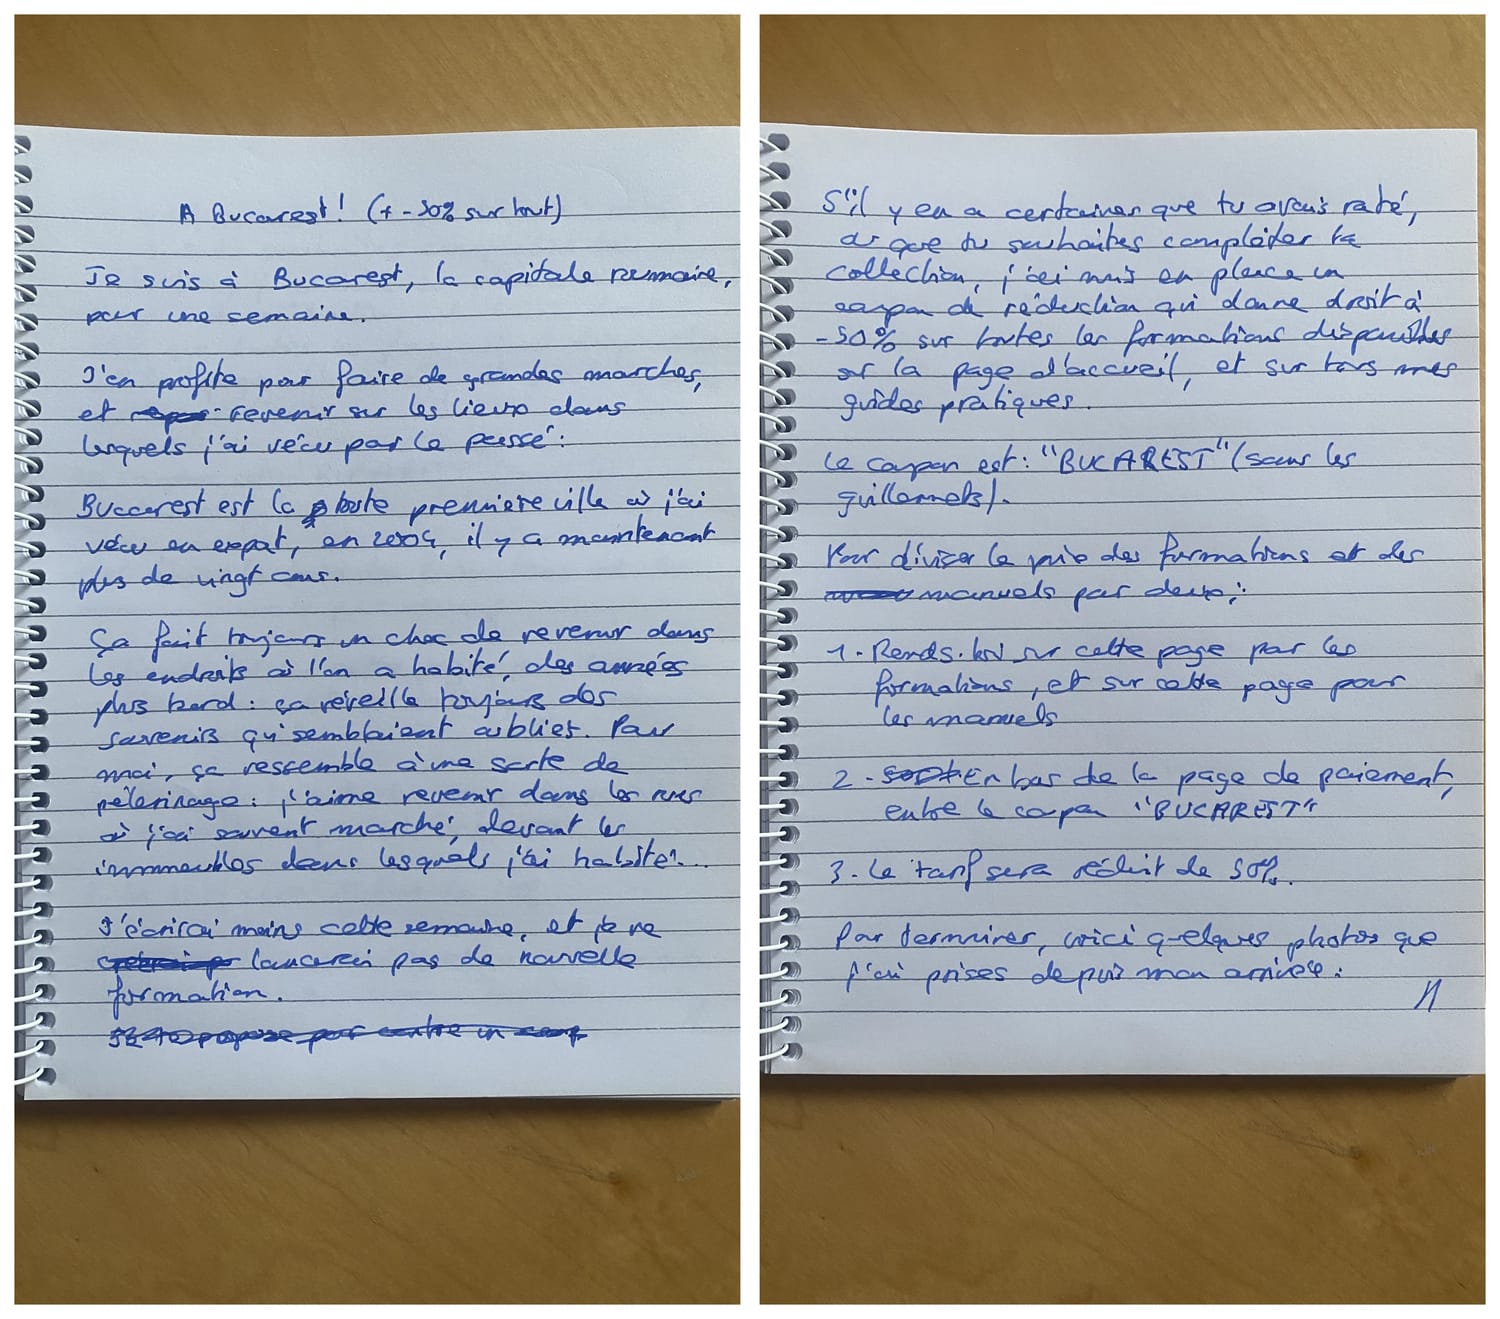 A Bucarest! (+ -50% sur tout)
Je suis à Bucarest, la capitale roumaine,
pour une semaine.
J'en profite pour faire de grandes marches,
et revenir sur les lieux dans
lesquels j'ai vécu par le passé.
Bucarest est la toute première ville où j'ai
vécu en expat, en 2004, il y a maintenant
plus de vingt ans.
Ça fait toujours un choc de revenir dans
les endroits où l'on a habité, des années
plus tard : ça réveille toujours des
souvenirs qui semblaient oubliés. Pour
moi, ça ressemble à une sorte de
pèlerinage : j'aime revenir dans les rues
où j'ai souvent marché, devant les
immeubles dans lesquels j'ai habité...
J'écrirai moins cette semaine, et je ne
lancerai pas de nouvelle
formation.
Je te propose par contre un coup
S'il y en a certaines que tu avais raté,
ou que tu souhaites compléter ta
collection, j'ai mis en place un
coupon de réduction qui donne droit à
-50% sur toutes les formations disponibles
sur la page d'accueil, et sur tous mes
guides pratiques.
Le coupon est : "BUCAREST" (sans les
guillemets).
Pour diviser le prix des formations et des
manuels par deux :
1. Rends-toi sur cette page pour les
formations, et sur cette page pour
les manuels
2. En bas de la page de paiement,
entre le coupon "BUCAREST"
3. Le tarif sera réduit de 50%.
Pour terminer, voici quelques photos que
j'ai prises depuis mon arrivée :